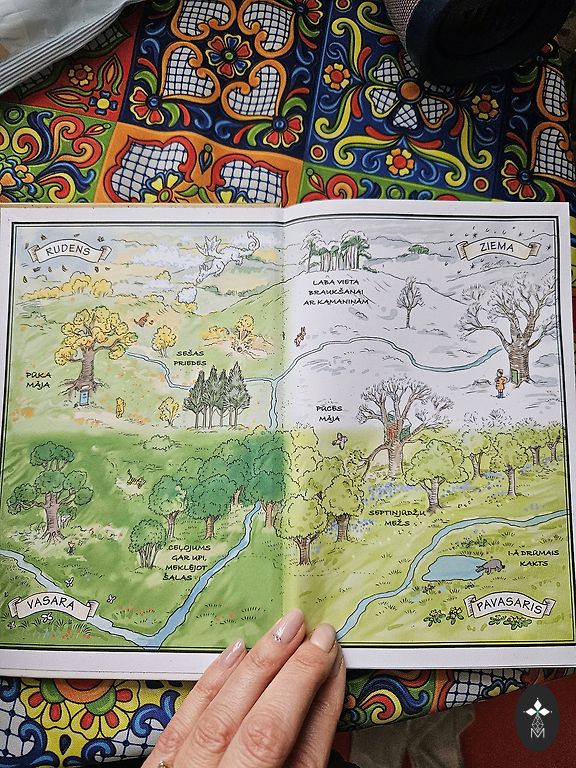 RUDENS
ZIEMA
LABA VIETA
BRAUKŠANAI
AR KAMANIŅĀM
SEŠAS
PRIEDES
PŪKA
MĀJA
PŪCES
MĀJA
SEPTIŅJŪDŽU
MEŽS
CEĻOJUMS
GAR UPI,
MEKLĒJOT
ŠALAS
I-Ā DRŪMAIS
KAKTS
VASARA
PAVASARIS
M